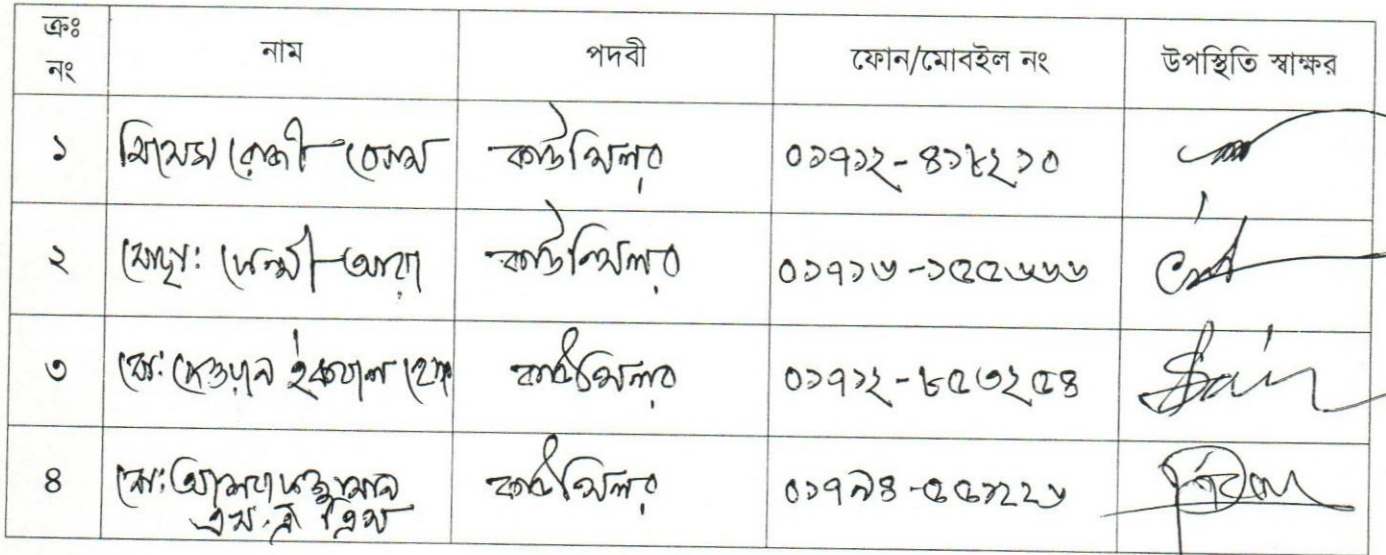 ক্রঃ নং নাম পদবী ফোন/মোবইল নং উপস্থিতি স্বাক্ষর
১ মিসেস রোজী বেগম কাউন্সিলর ০১৭১২-৪১৮২১০
২ মোছা: আরা কাউন্সিলর ০১৭১৬-১৫৫৬৬৬
৩ মো: দেওয়ান ইকবাল কাউন্সিলর ০১৭১২-৮৫৩২৫৪
৪ মো: কাউন্সিলর ০১৭৭৪-৫৫১২২৬